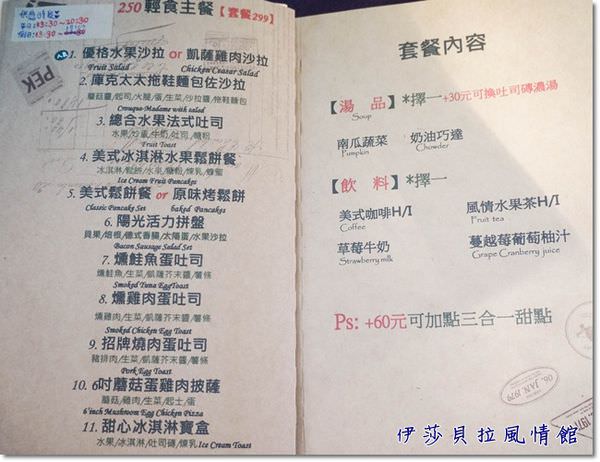 供應時段
250 輕食主餐【套餐299】
1. 優格水果沙拉 or 凱薩雞肉沙拉
Fruit Salad Chicken Ceasar Salad
2. 庫克太太拖鞋麵包佐沙拉
蘑菇醬/起司/火腿/蛋/生菜/沙拉醬/拖鞋麵包
Croque-Madame with salad
3. 總合水果法式吐司
水果/炒蛋/牛奶/吐司/糖粉
Fruit Toast
4. 美式冰淇淋水果鬆餅餐
冰淇淋/鬆餅/水果/糖粉/煉乳/蜂蜜
Ice Cream Fruit Pancakes
5. 美式鬆餅餐 or 原味烤鬆餅
Classic Pancake Set baked Pancakes
6. 陽光活力拼盤
貝果/培根/德式香腸/太陽蛋/水果沙拉
Bacon Sausage Salad Set
7. 燻鮭魚蛋吐司
燻鮭魚/生菜/凱薩芥末醬/薯條
Smoked Tuna EggToast
8. 燻雞肉蛋吐司
燻雞肉/生菜/凱薩芥末醬/薯條
Smoked Chicken Egg Toast
9. 招牌燒肉蛋吐司
豬排肉/生菜/凱薩芥末醬/薯條
Pork Egg Toast
10. 6吋蘑菇蛋雞肉披薩
蘑菇/雞肉/生菜/起士/蛋
6'inch Mushroom Egg Chicken Pizza
11. 甜心冰淇淋寶盒
水果/冰淇淋/吐司磚/煉乳 Ice Cream Toast
PEK
套餐內容
【湯 品】*擇一+30元可換吐司磚濃湯
Soup
南瓜蔬菜 奶油巧達
Pumpkin Chowder
【飲 料】*擇一
美式咖啡H/I 風情水果茶H/I
Coffee Fruit tea
草莓牛奶 蔓越莓葡萄柚汁
Strawberry milk Grape Cranberry juice
Ps: +60元可加點三合一甜點
06. JAN. 1979
伊莎貝拉風情館